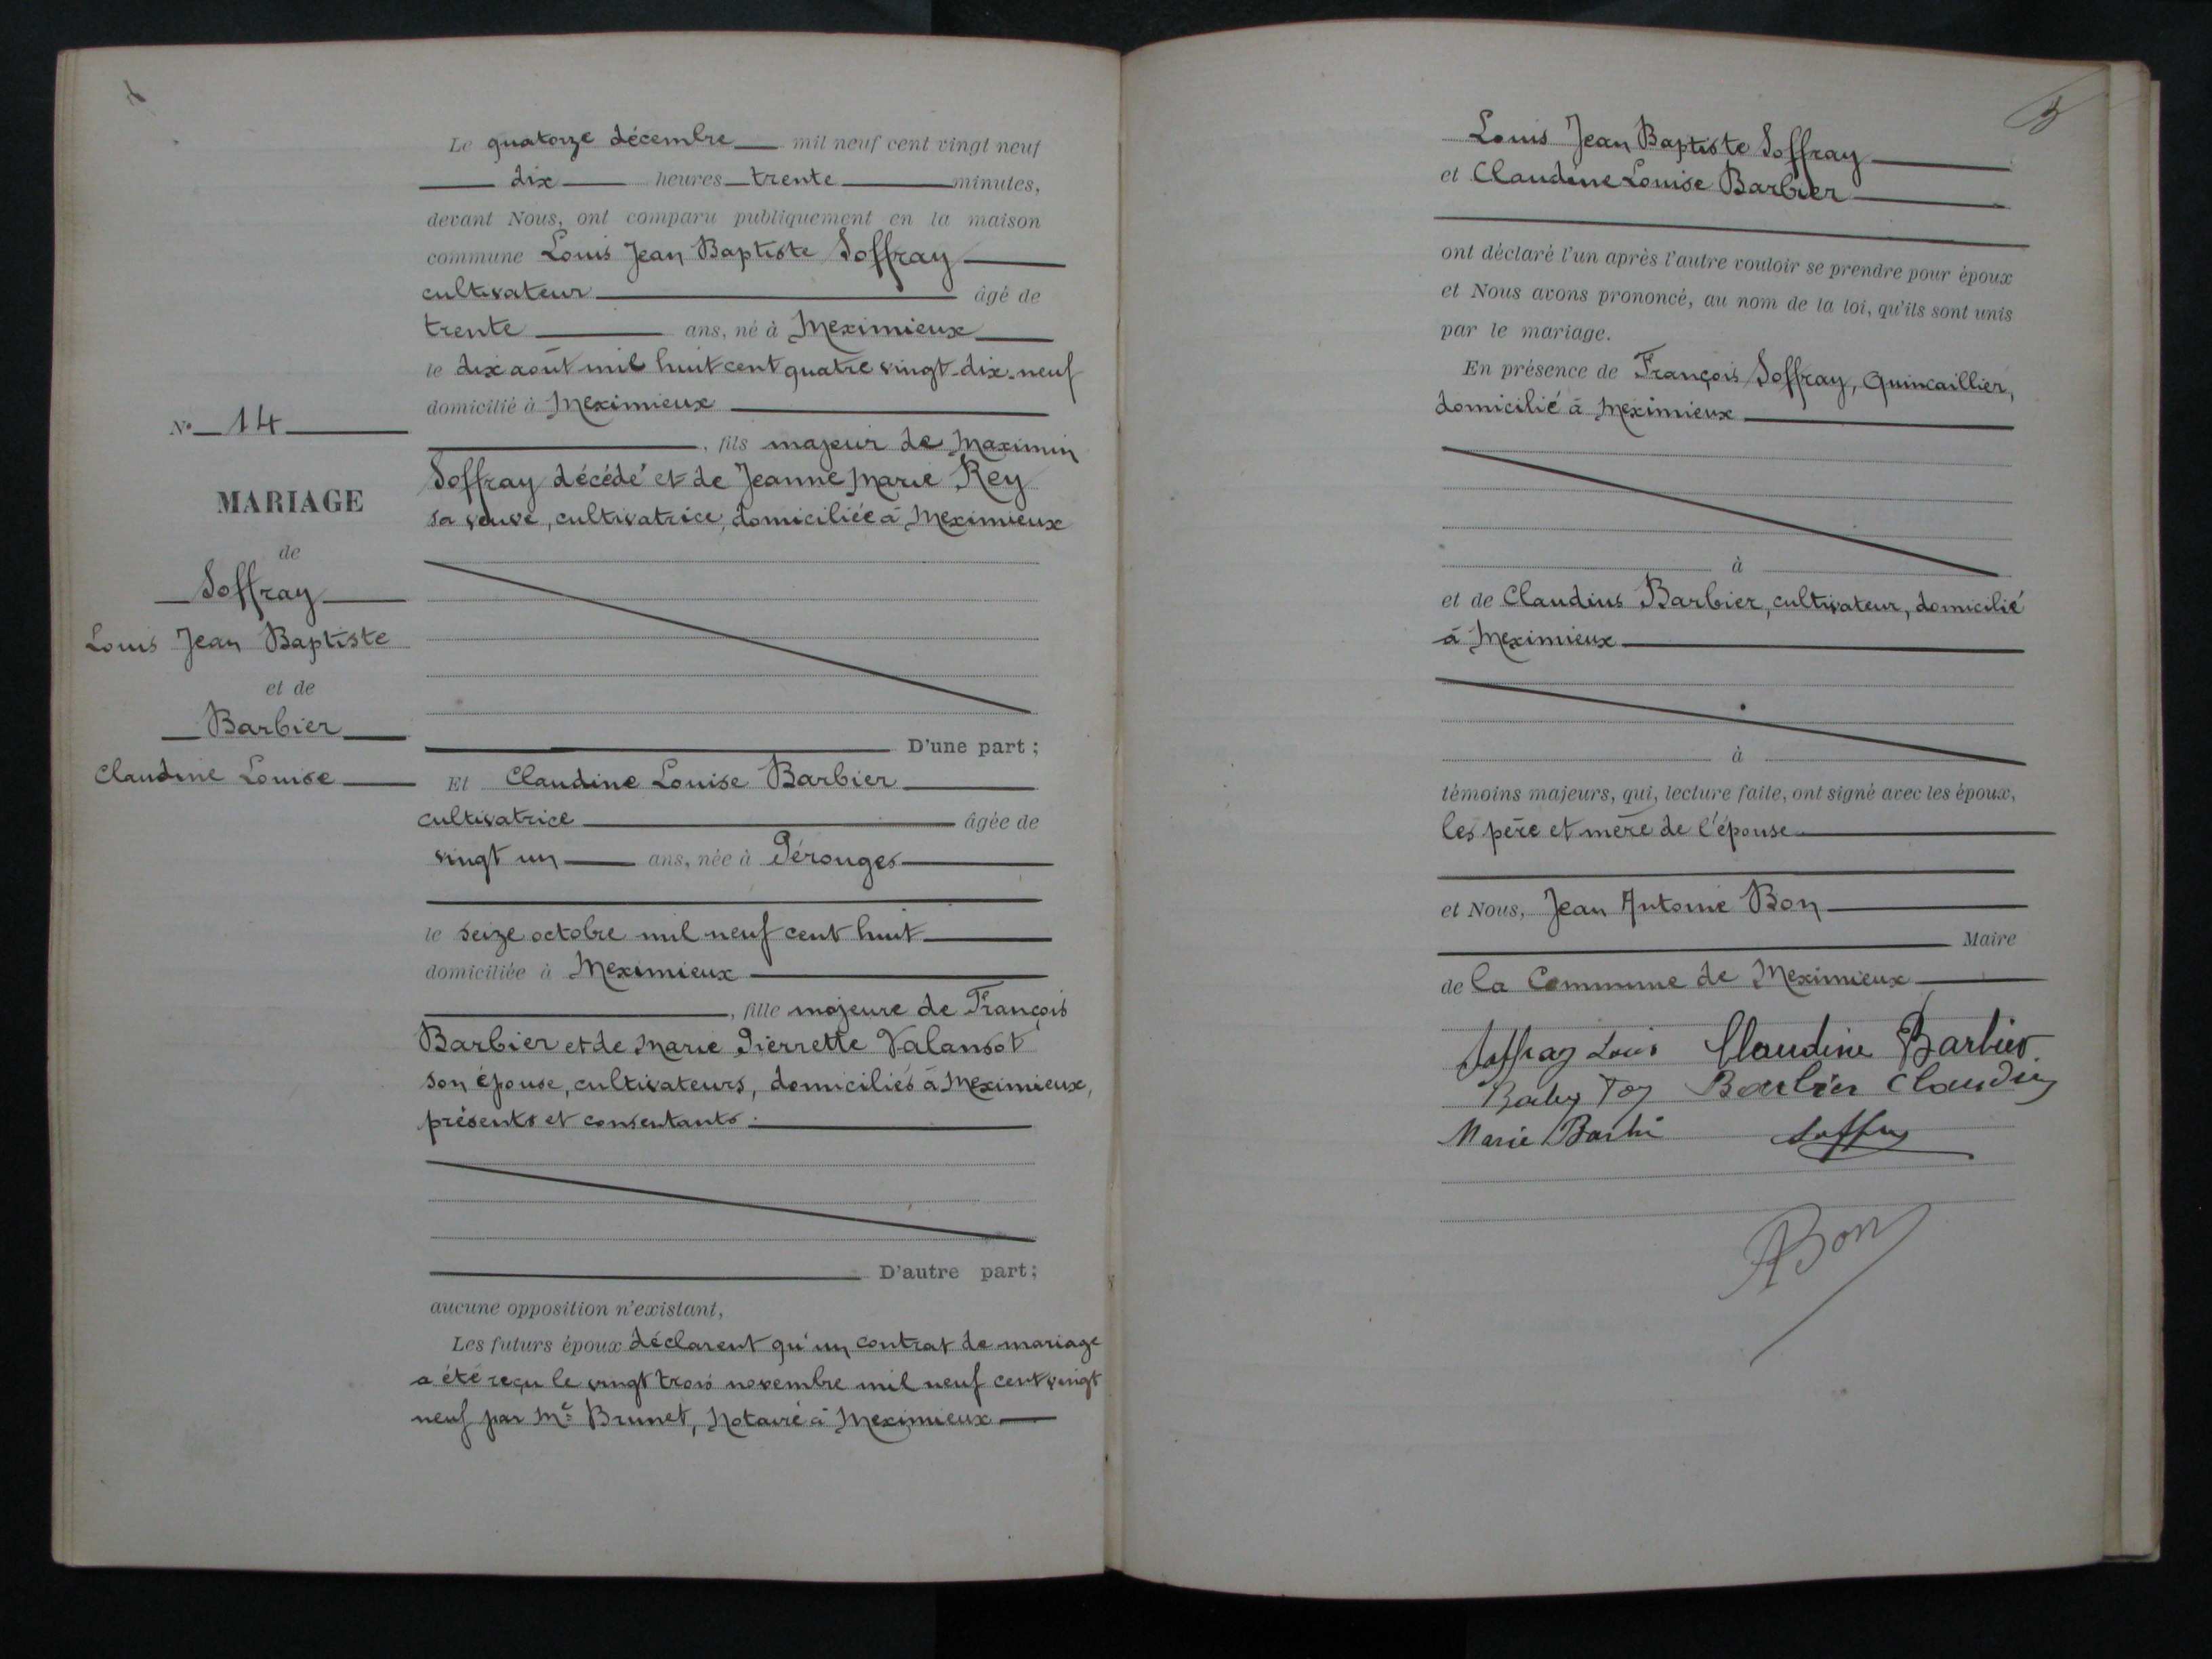 Le quatorze décembre mil neuf cent vingt neuf
dix heures trente minutes,
devant Nous, ont comparu publiquement en la maison
commune Louis Jean Baptiste Soffray
cultivateur âgé de
trente ans, né à Meximieux
le dix août mil huit cent quatre vingt-dix-neuf
domicilié à Meximieux
, fils majeur de Maximin
Soffray décédé et de Jeanne Marie Rey
sa veuve, cultivatrice, domiciliée à Meximieux
D'une part ;
N° 14
MARIAGE
de
Soffray
Louis Jean Baptiste
et de
Barbier
Claudine Louise
Et Claudine Louise Barbier
cultivatrice âgée de
vingt un ans, née à Pérouges
le seize octobre mil neuf cent huit
domiciliée à Meximieux
, fille majeure de François
Barbier et de Marie Pierrette Valansot
son épouse, cultivateurs, domiciliés à Meximieux,
présents et consentants.
D'autre part ;
aucune opposition n'existant,
Les futurs époux déclarent qu'un contrat de mariage
a été reçu le vingt trois novembre mil neuf cent vingt
neuf par Me Brunet, Notaire à Meximieux
Louis Jean Baptiste Soffray
et Claudine Louise Barbier
ont déclaré l'un après l'autre vouloir se prendre pour époux
et Nous avons prononcé, au nom de la loi, qu'ils sont unis
par le mariage.
En présence de François Soffray, Quincaillier,
domicilié à Meximieux
à
et de Claudius Barbier, cultivateur, domicilié
à Meximieux
à
témoins majeurs, qui, lecture faite, ont signé avec les époux,
les père et mère de l'épouse
et Nous, Jean Antoine Bon
Maire
de la Commune de Meximieux
Soffray Louis Claudine Barbier
Barbier Claudius
Marie Soffray
Bon